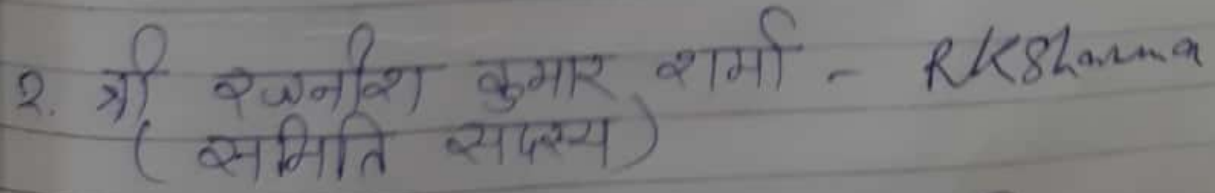 2. श्री रजनीश कुमार शर्मा - RKSharma
( समिति सदस्य )